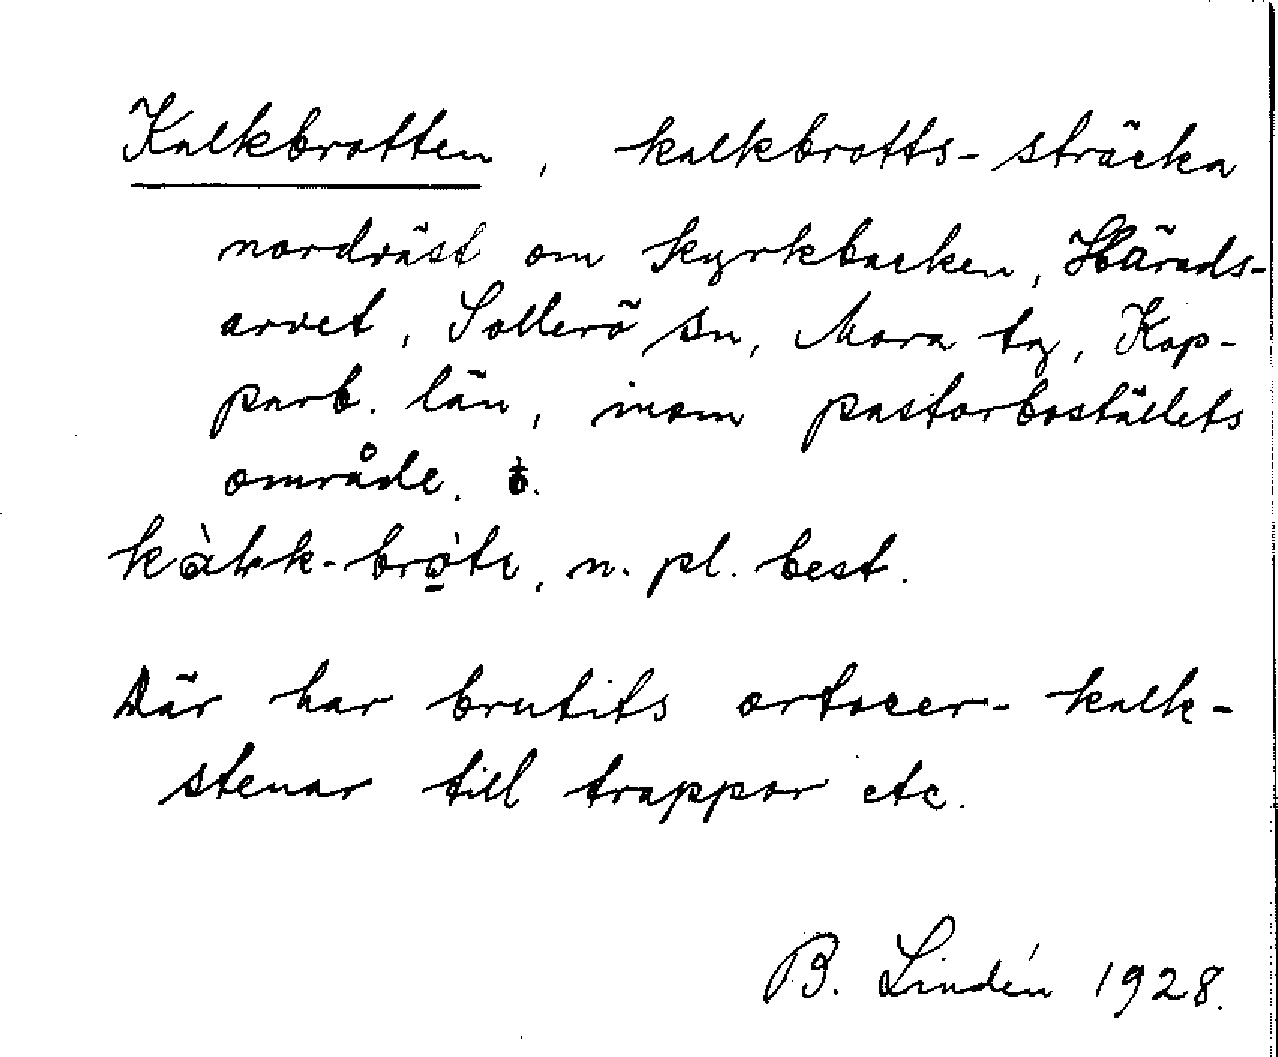 Kalkbrotten, kalkbrotts-sträcka
nordväst om Kyrkbacken, Härads-
arvet, Sollerö sn, Mora tg, Kop-
parb. län, inom pastorboställets
område.
n. pl. best.
Där har brutits ortocer-kalk-
stenar till trappor etc.
B. Lindén 1928.